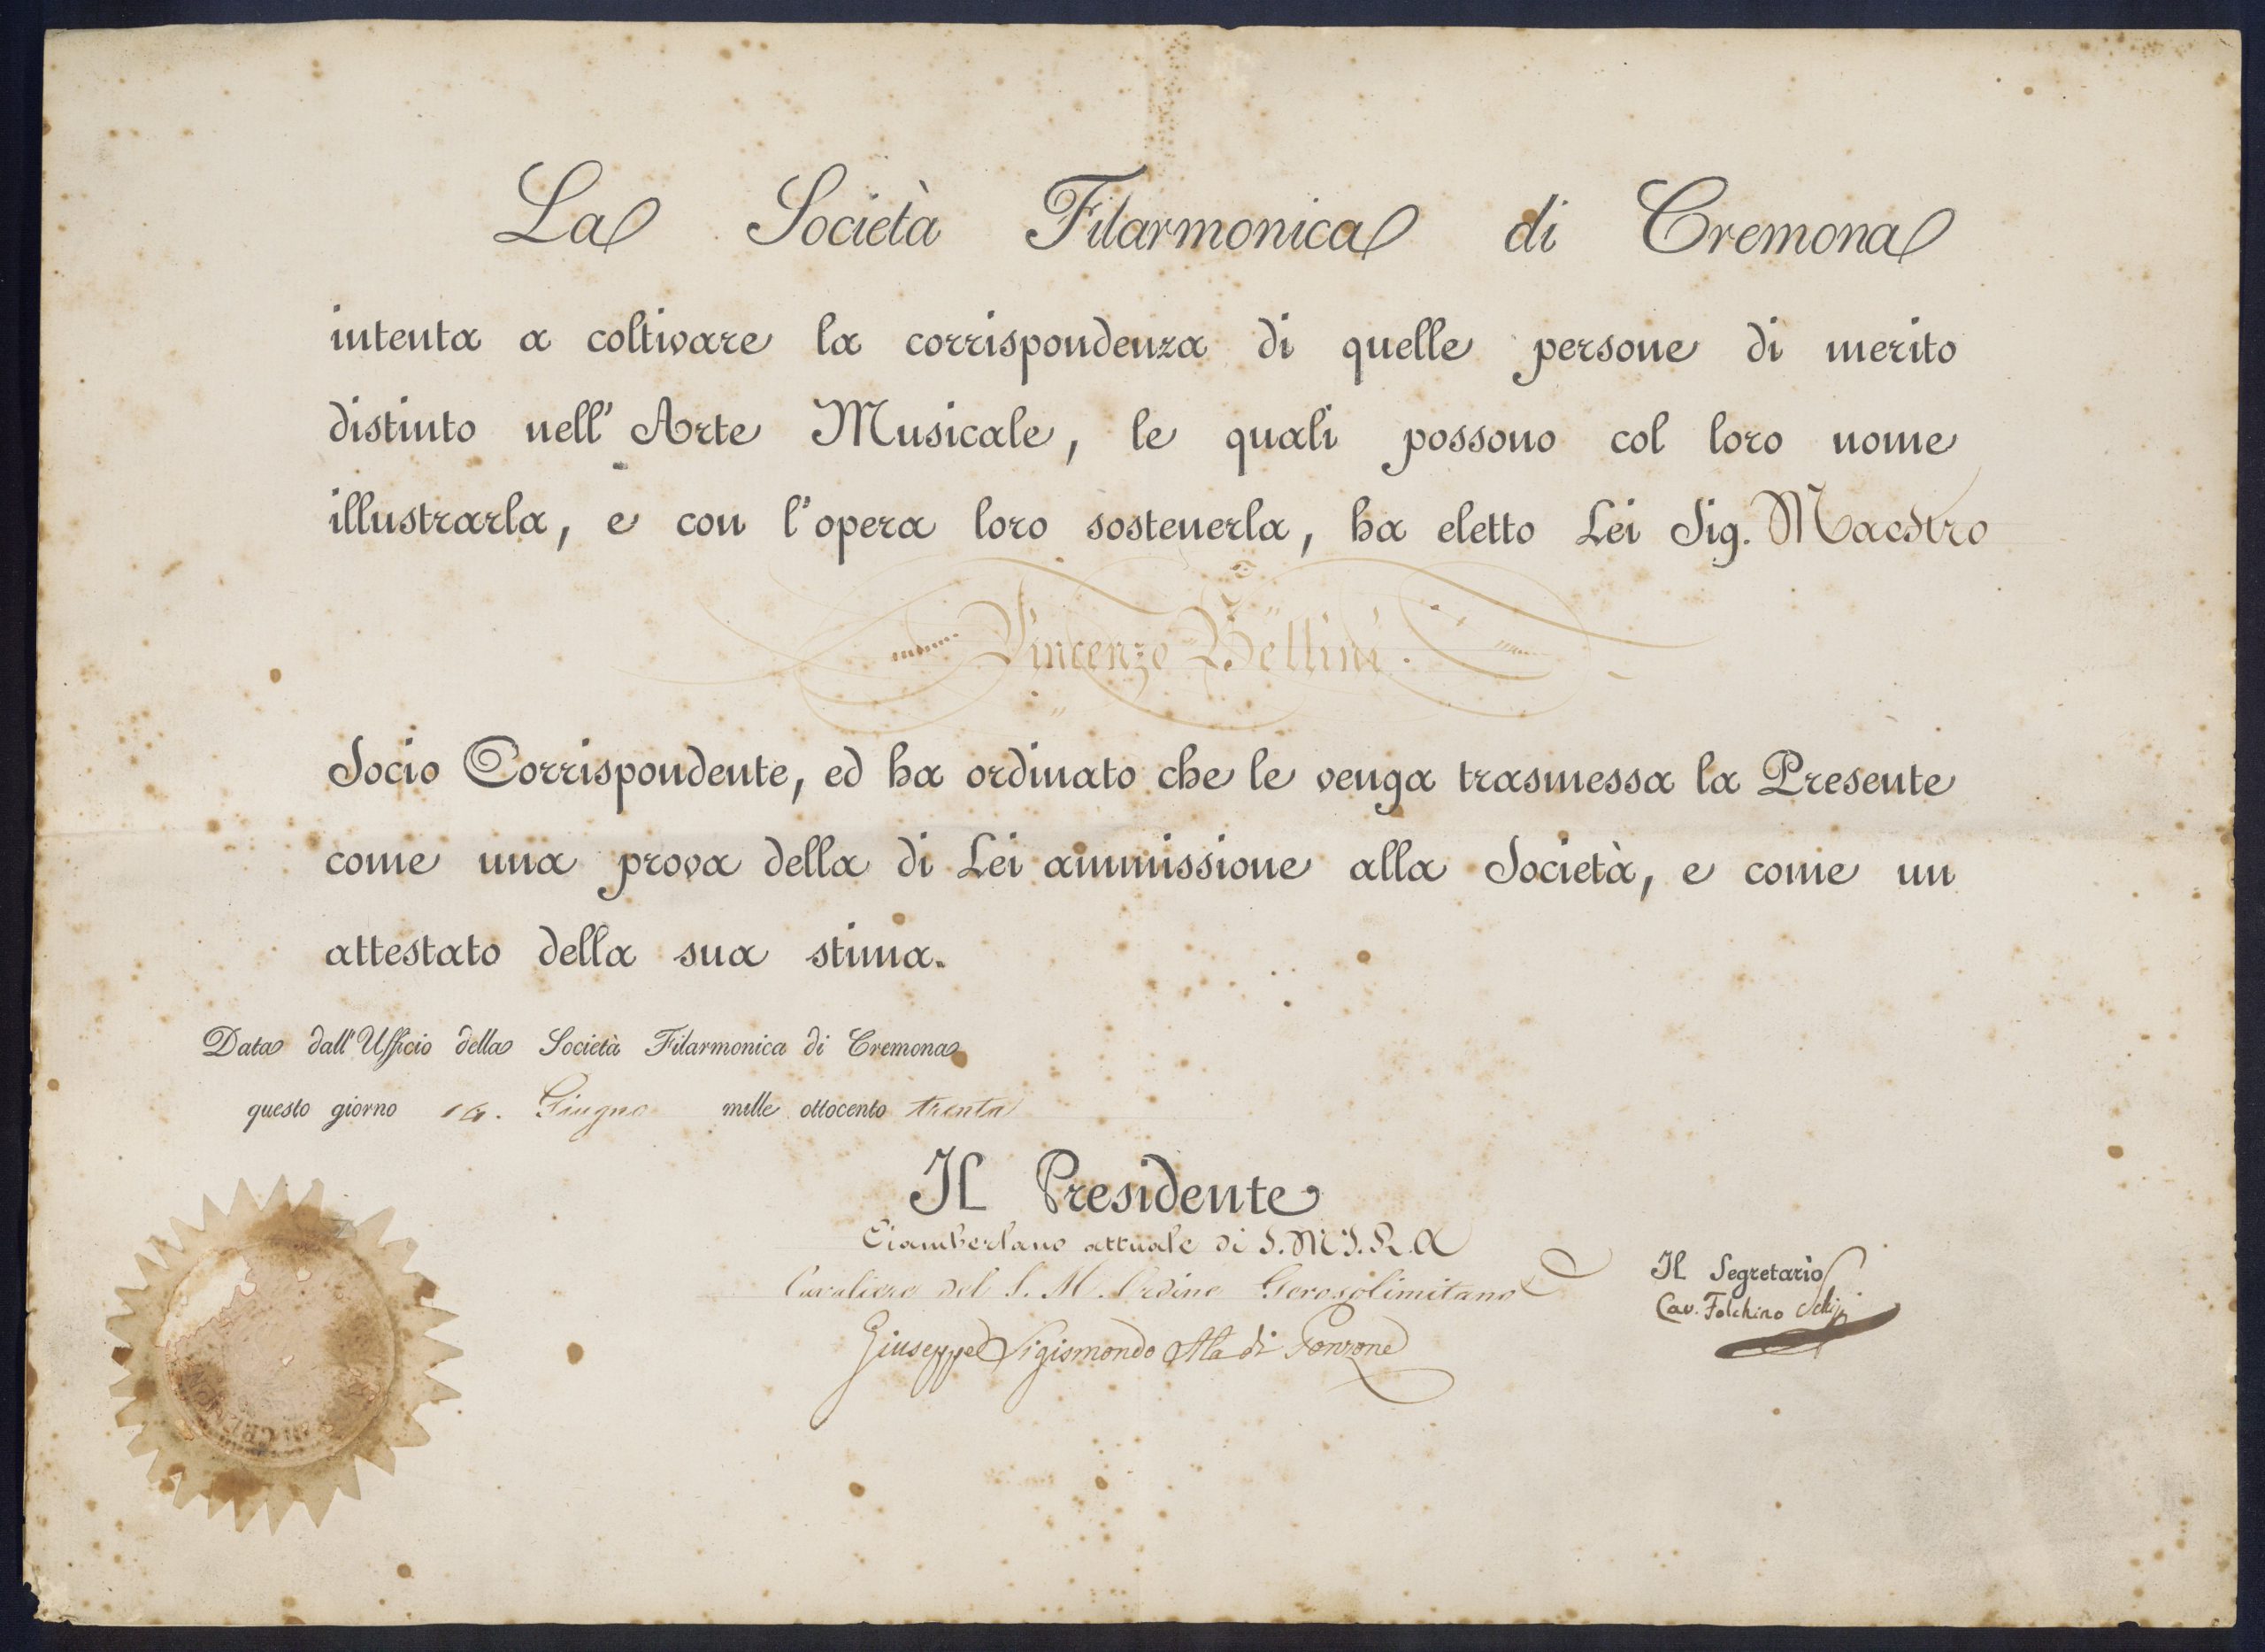 La Società Filarmonica di Cremona
intenta a coltivare la corrispondenza di quelle persone di merito
distinto nell' Arte Musicale, le quali possono col loro nome
illustrarla, e con l'opera loro sostenerla, ha eletto Lei Sig. Maestro
Vincenzo Bellini.
Socio Corrispondente, ed ha ordinato che le venga trasmessa la Presente
come una prova della di Lei ammissione alla Società, e come un
attestato della sua stima.
Data dall'Ufficio della Società Filarmonica di Cremona
questo giorno Giugno mille ottocento trenta
Il Presidente
Ciamberlano attuale di S.M.I.R.A
Cavaliere del S. M. Ordine Gerosolimitano
Giuseppe Sigismondo Ala di Ponzone
Il Segretario
Cav. Folchino